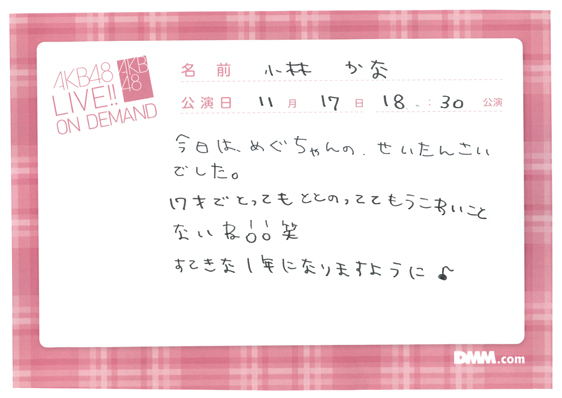 AKB48
LIVE!!
ON DEMAND
AKB
48
名 前 小林 かな
公演日 11 月 17 日 18 : 30 公演
今日は、めぐちゃんの、せいたんさい
でした。
17才でとってもととのっててもうこわいこと
ないね!!笑
すてきな1年になりますように♪
DMM.com